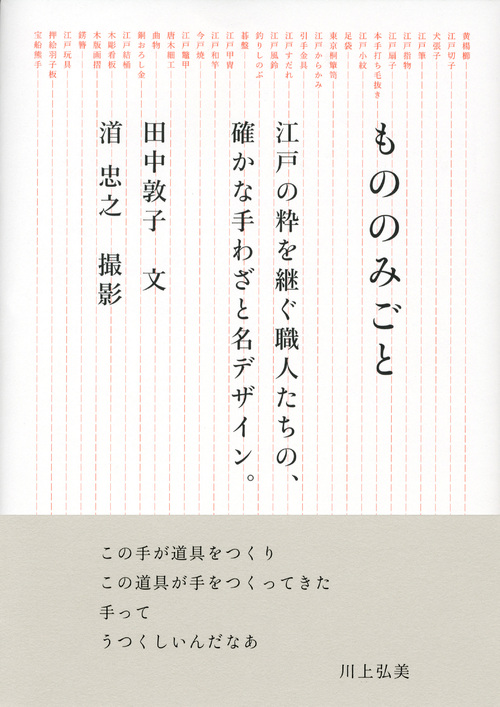 黄楊櫛
江戸切子
犬張子
江戸筆
江戸指物
江戸扇子
本手打ち毛抜き
江戸小紋
足袋
東京桐簞笥
江戸からかみ
引手金具
江戸すだれ
江戸風鈴
釣りしのぶ
碁盤
江戸甲冑
江戸和竿
今戸焼
江戸鼈甲
唐木細工
曲物
銅おろし金
江戸結桶
木彫看板
木版画摺
錺簪
江戸玩具
押絵羽子板
宝船熊手
もののみごと
江戸の粋を継ぐ職人たちの、
確かな手わざと名デザイン。
田中敦子 文
渞 忠之 撮影
この手が道具をつくり
この道具が手をつくってきた
手って
うつくしいんだなあ
川上弘美